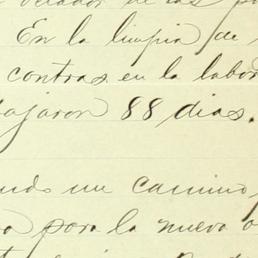 velador de las
En la limpia de
contras en la labor
ajaron 88 dias.
ndo un camino
para la nueva